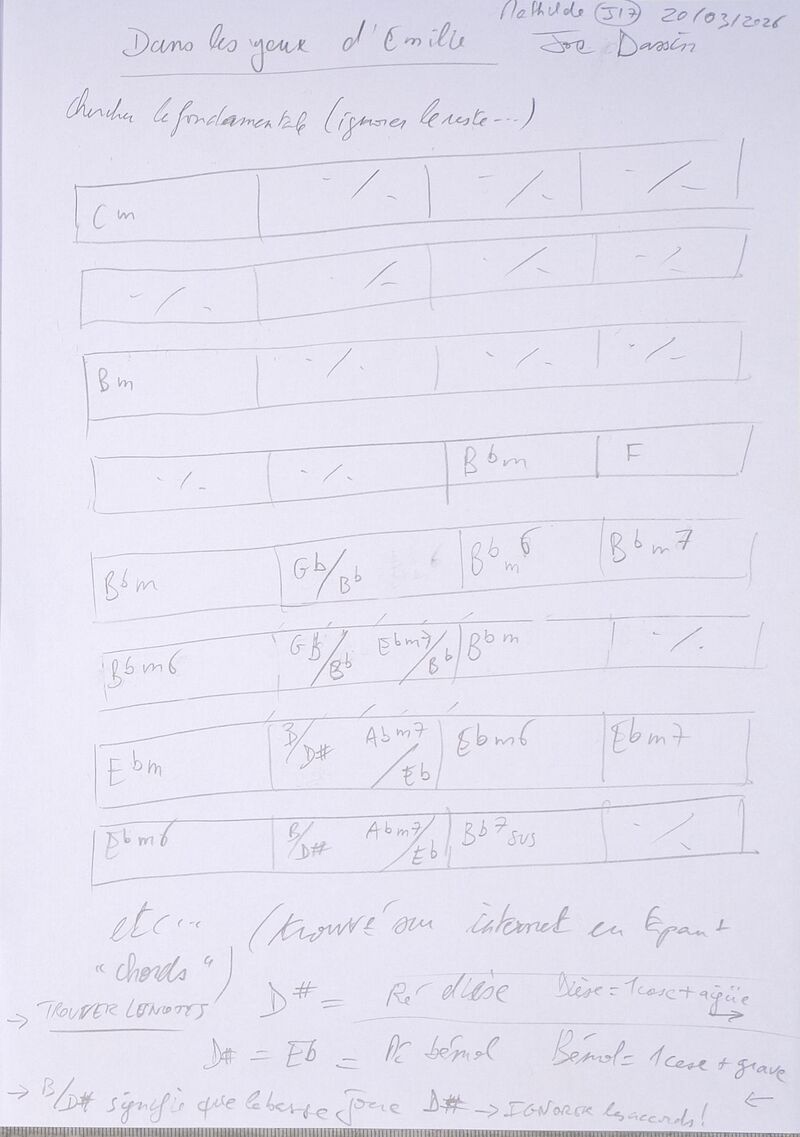 Mathilde (J17) 20/03/2026
Dans les yeux d'Emilie Joe Dassin
chercher la fondamentale (ignorer le reste...)
Cm ٪ ٪ ٪
٪ ٪ ٪ ٪
Bm ٪ ٪ ٪
٪ ٪ Bbm F
Bbm Gb/Bb Bbm6 Bbm7
Bbm6 GB/Bb Ebm7/Bb Bbm ٪
Ebm B/D# Abm7/Eb Ebm6 Ebm7
Ebm6 B/D# Abm7/Eb Bb7sus ٪
etc... (trouvé sur internet en tapant
"chords")
→ TROUVER LES NOTES D# = Ré dièse Dièse = 1 case + aigüe →
D# = Eb = bémol Bémol = 1 case + grave ←
→ B/D# signifie que la basse joue D# → IGNORER les accords !